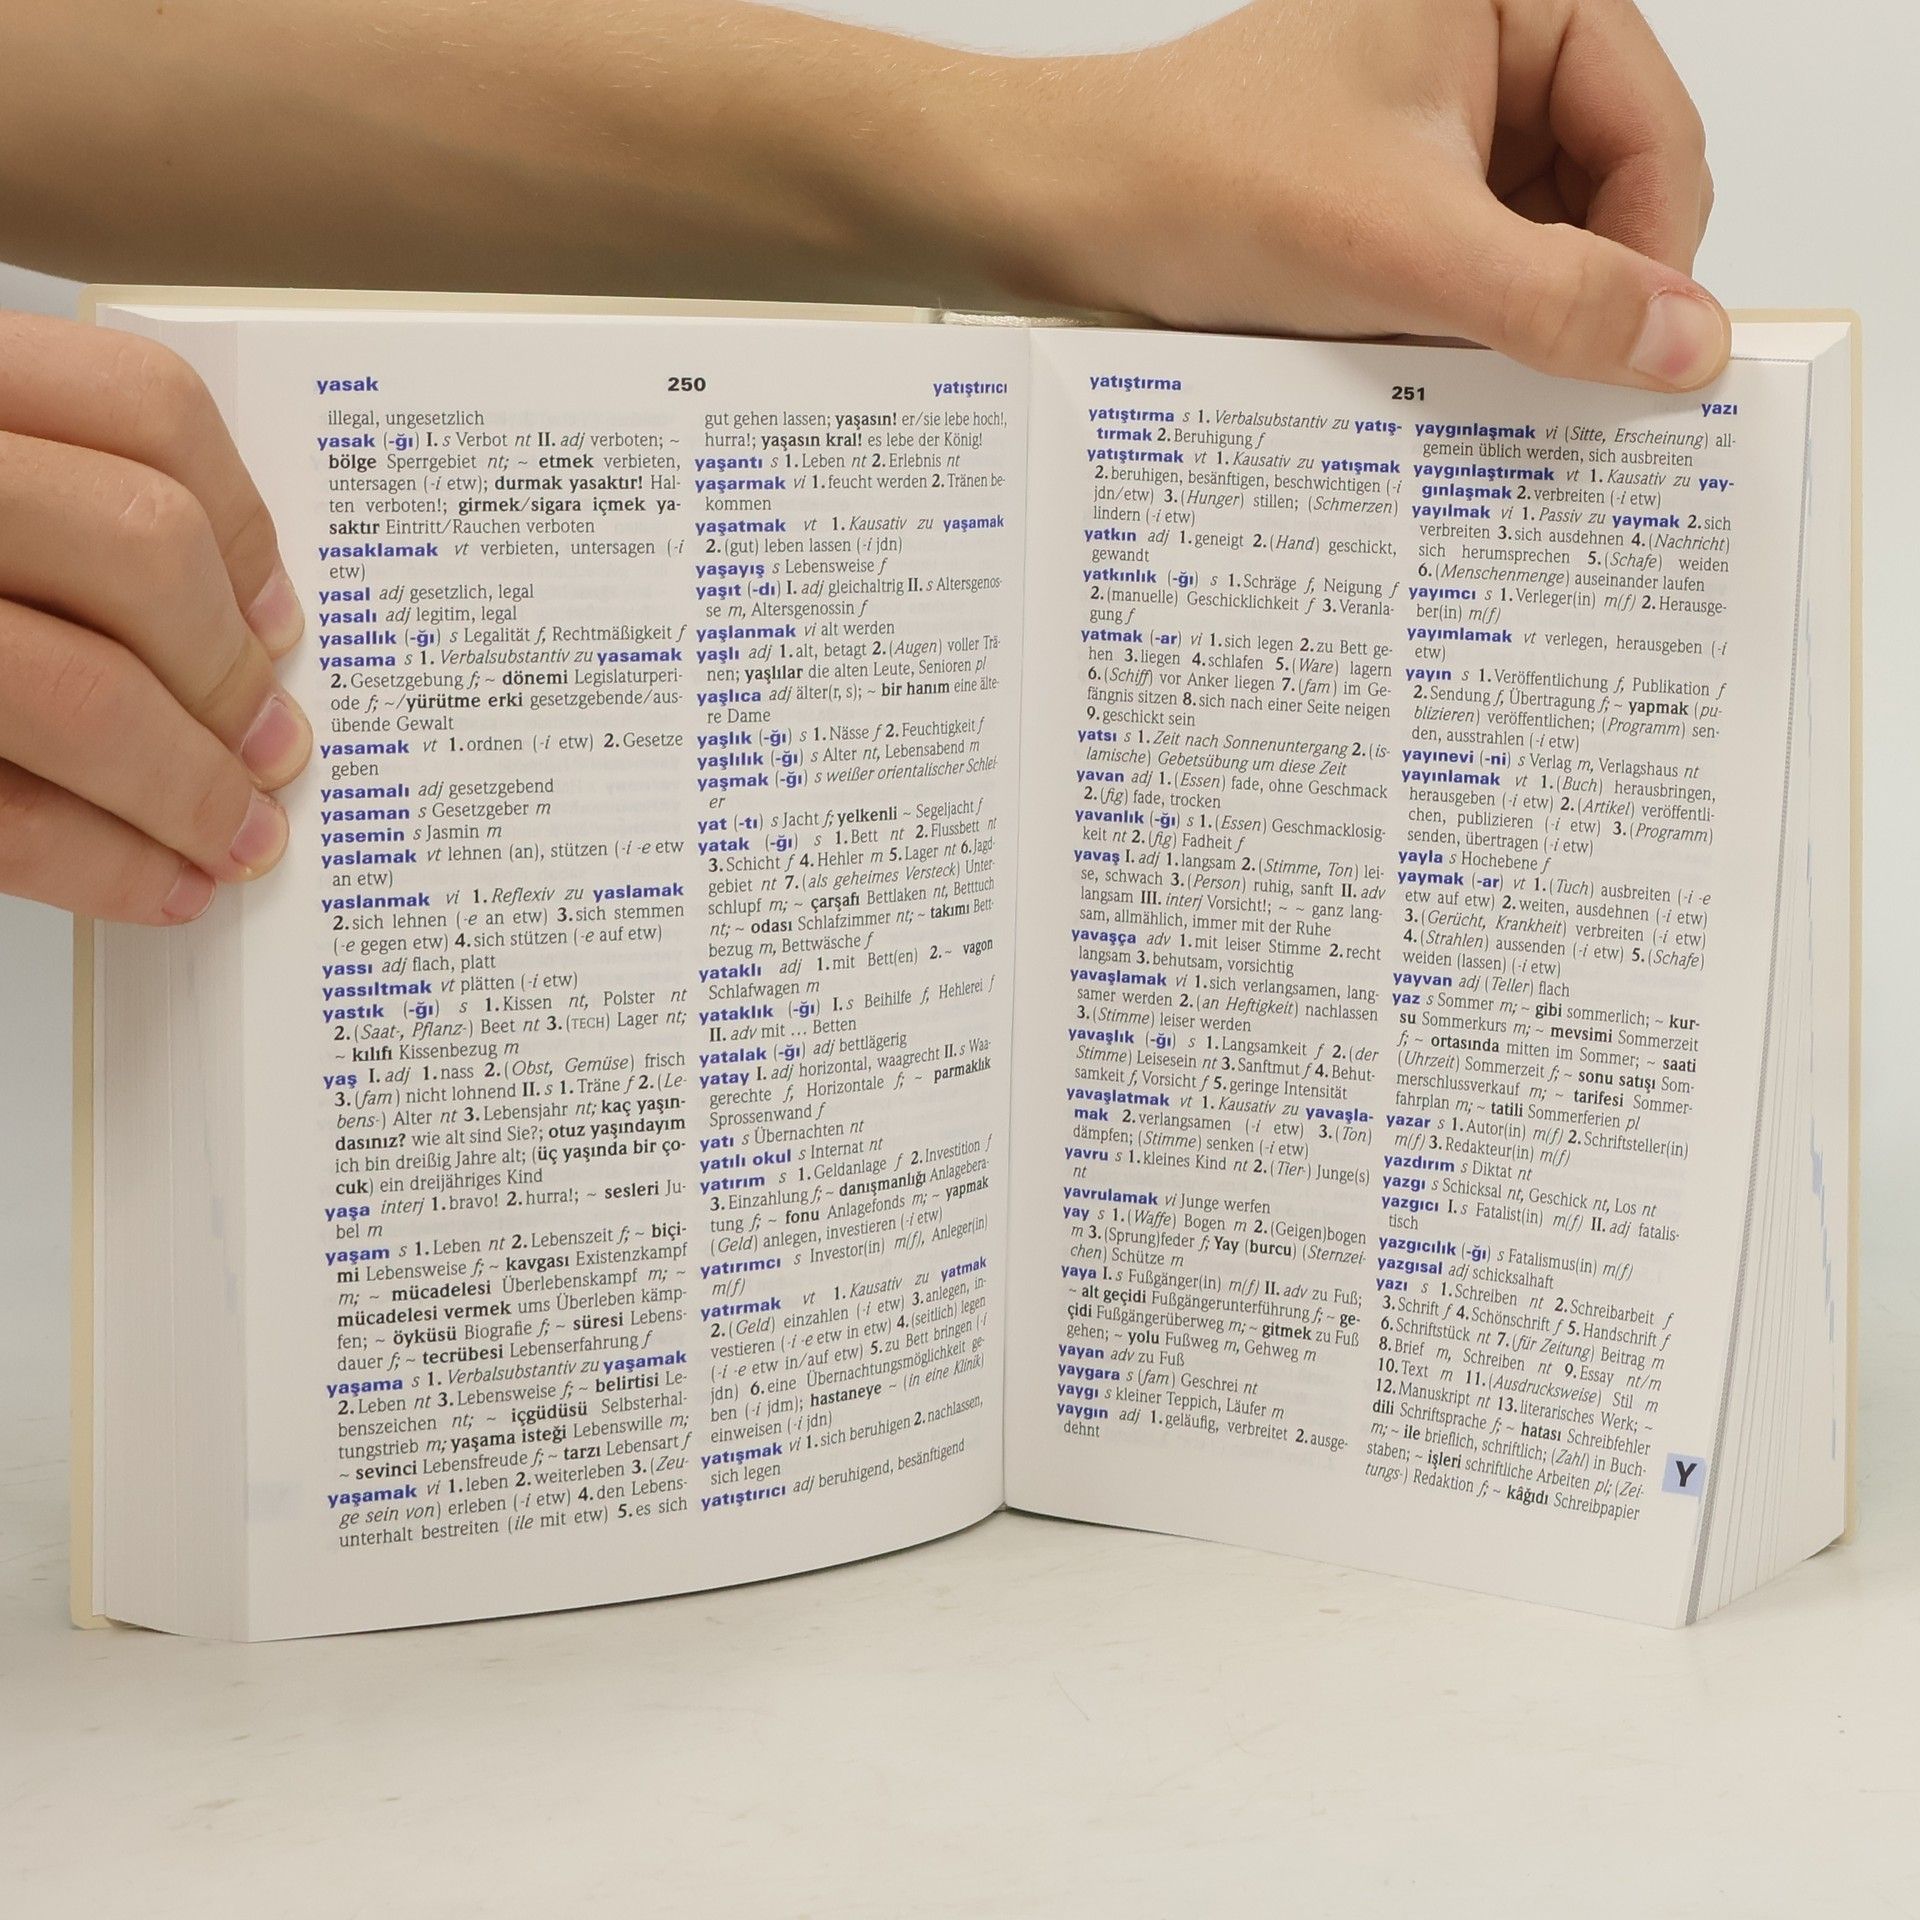 yasak
250
yatıştırıcı
illegal, ungesetzlich
yasak (-ğı) I. s Verbot nt II. adj verboten; ~
bölge Sperrgebiet nt; ~ etmek verbieten,
untersagen (-i etw); durmak yasaktır! Hal-
ten verboten!; girmek/sigara içmek ya-
saktır Eintritt/Rauchen verboten
yasaklamak vt verbieten, untersagen (-i
etw)
yasal adj gesetzlich, legal
yasalı adj legitim, legal
yasallık (-ğı) s Legalität f, Rechtmäßigkeit f
yasama s 1. Verbalsubstantiv zu yasamak
2. Gesetzgebung f; ~ dönemi Legislaturperi-
ode f; ~/yürütme erki gesetzgebende/aus-
übende Gewalt
yasamak vt 1. ordnen (-i etw) 2. Gesetze
geben
yasamalı adj gesetzgebend
yasaman s Gesetzgeber m
yasemin s Jasmin m
yaslamak vt lehnen (an), stützen (-i -e etw
an etw)
yaslanmak vi 1. Reflexiv zu yaslamak
2. sich lehnen (-e an etw) 3. sich stemmen
(-e gegen etw) 4. sich stützen (-e auf etw)
yassı adj flach, platt
yassıltmak vt plätten (-i etw)
yastık (-ğı) s 1. Kissen nt, Polster nt
2. (Saat-, Pflanz-) Beet nt 3. (TECH) Lager nt;
~ kılıfı Kissenbezug m
yaş I. adj 1. nass 2. (Obst, Gemüse) frisch
3. (fam) nicht lohnend II. s 1. Träne f 2. (Le-
bens-) Alter nt 3. Lebensjahr nt; kaç yaşın-
dasınız? wie alt sind Sie?; otuz yaşındayım
ich bin dreißig Jahre alt; (üç yaşında bir ço-
cuk) ein dreijähriges Kind
yaşa interj 1. bravo! 2. hurra!; ~ sesleri Ju-
bel m
yaşam s 1. Leben nt 2. Lebenszeit f; ~ biçi-
mi Lebensweise f; ~ kavgası Existenzkampf
m; ~ mücadelesi Überlebenskampf m; ~
mücadelesi vermek ums Überleben kämp-
fen; ~ öyküsü Biografie f; ~ süresi Lebens-
dauer f; ~ tecrübesi Lebenserfahrung f
yaşama s 1. Verbalsubstantiv zu yaşamak
2. Leben nt 3. Lebensweise f; ~ belirtisi Le-
benszeichen nt; ~ içgüdüsü Selbsterhal-
tungstrieb m; yaşama isteği Lebenswille m;
~ sevinci Lebensfreude f; ~ tarzı Lebensart f
yaşamak vi 1. leben 2. weiterleben 3. (Zeu-
ge sein von) erleben (-i etw) 4. den Lebens-
unterhalt bestreiten (ile mit etw) 5. es sich
gut gehen lassen; yaşasın! er/sie lebe hoch!,
hurra!; yaşasın kral! es lebe der König!
yaşantı s 1. Leben nt 2. Erlebnis nt
yaşarmak vi 1. feucht werden 2. Tränen be-
kommen
yaşatmak vt 1. Kausativ zu yaşamak
2. (gut) leben lassen (-i jdn)
yaşayış s Lebensweise f
yaşıt (-dı) I. adj gleichaltrig II. s Altersgenos-
se m, Altersgenossin f
yaşlanmak vi alt werden
yaşlı adj 1. alt, betagt 2. (Augen) voller Trä-
nen; yaşlılar die alten Leute, Senioren pl
yaşlıca adj älter(r, s); ~ bir hanım eine älte-
re Dame
yaşlık (-ğı) s 1. Nässe f 2. Feuchtigkeit f
yaşlılık (-ğı) s Alter nt, Lebensabend m
yaşmak (-ğı) s weißer orientalischer Schlei-
er
yat (-tı) s Jacht f; yelkenli ~ Segeljacht f
yatak (-ğı) s 1. Bett nt 2. Flussbett nt
3. Schicht f 4. Hehler m 5. Lager nt 6. Jagd-
gebiet nt 7. (als geheimes Versteck) Unter-
schlupf m; ~ çarşafı Bettlaken nt, Betttuch
nt; ~ odası Schlafzimmer nt; ~ takımı Bett-
bezug m, Bettwäsche f
yataklı adj 1. mit Bett(en) 2. ~ vagon
Schlafwagen m
yataklık (-ğı) I. s Beihilfe f, Hehlerei f
II. adv mit ... Betten
yatalak (-ğı) adj bettlägerig
yatay I. adj horizontal, waagrecht II. s Waa-
gerechte f, Horizontale f; ~ parmaklık
Sprossenwand f
yatı s Übernachten nt
yatılı okul s Internat nt
yatırım s 1. Geldanlage f 2. Investition f
3. Einzahlung f; ~ danışmanlığı Anlagebera-
tung f; ~ fonu Anlagefonds m; ~ yapmak
(Geld) anlegen, investieren (-i etw)
yatırımcı s Investor(in) m(f), Anleger(in)
m(f)
yatırmak vt 1. Kausativ zu yatmak
2. (Geld) einzahlen (-i etw) 3. anlegen, in-
vestieren (-i -e etw in etw) 4. (seitlich) legen
(-i -e etw in/auf etw) 5. zu Bett bringen (-i
jdn) 6. eine Übernachtungsmöglichkeit ge-
ben (-i jdm); hastaneye ~ (in eine Klinik)
einweisen (-i jdn)
yatışmak vi 1. sich beruhigen 2. nachlassen,
sich legen
yatıştırıcı adj beruhigend, besänftigend
yatıştırma
251
yazı
yatıştırma s 1. Verbalsubstantiv zu yatış-
tırmak 2. Beruhigung f
yatıştırmak vt 1. Kausativ zu yatışmak
2. beruhigen, besänftigen, beschwichtigen (-i
jdn/etw) 3. (Hunger) stillen; (Schmerzen)
lindern (-i etw)
yatkın adj 1. geneigt 2. (Hand) geschickt,
gewandt
yatkınlık (-ğı) s 1. Schräge f, Neigung f
2. (manuelle) Geschicklichkeit f 3. Veranla-
gung f
yatmak (-ar) vi 1. sich legen 2. zu Bett ge-
hen 3. liegen 4. schlafen 5. (Ware) lagern
6. (Schiff) vor Anker liegen 7. (fam) im Ge-
fängnis sitzen 8. sich nach einer Seite neigen
9. geschickt sein
yatsı s 1. Zeit nach Sonnenuntergang 2. (is-
lamische) Gebetsübung um diese Zeit
yavan adj 1. (Essen) fade, ohne Geschmack
2. (fig) fade, trocken
yavanlık (-ğı) s 1. (Essen) Geschmacklosig-
keit nt 2. (fig) Fadheit f
yavaş I. adj 1. langsam 2. (Stimme, Ton) lei-
se, schwach 3. (Person) ruhig, sanft II. adv
langsam III. interj Vorsicht!; ~ ~ ganz lang-
sam, allmählich, immer mit der Ruhe
yavaşça adv 1. mit leiser Stimme 2. recht
langsam 3. behutsam, vorsichtig
yavaşlamak vi 1. sich verlangsamen, lang-
samer werden 2. (an Heftigkeit) nachlassen
3. (Stimme) leiser werden
yavaşlık (-ğı) s 1. Langsamkeit f 2. (der
Stimme) Leisesein nt 3. Sanftmut f 4. Behut-
samkeit f, Vorsicht f 5. geringe Intensität
yavaşlatmak vt 1. Kausativ zu yavaşla-
mak 2. verlangsamen (-i etw) 3. (Ton)
dämpfen; (Stimme) senken (-i etw)
yavru s 1. kleines Kind nt 2. (Tier-) Junge(s)
nt
yavrulamak vi Junge werfen
yay s 1. (Waffe) Bogen m 2. (Geigen)bogen
m 3. (Sprung)feder f; Yay (burcu) (Sternzei-
chen) Schütze m
yaya I. s Fußgänger(in) m(f) II. adv zu Fuß;
~ alt geçidi Fußgängerunterführung f; ~ ge-
çidi Fußgängerüberweg m; ~ gitmek zu Fuß
gehen; ~ yolu Fußweg m, Gehweg m
yayan adv zu Fuß
yaygara s (fam) Geschrei nt
yaygı s kleiner Teppich, Läufer m
yaygın adj 1. geläufig, verbreitet 2. ausge-
dehnt
yaygınlaşmak vi (Sitte, Erscheinung) all-
gemein üblich werden, sich ausbreiten
yaygınlaştırmak vt 1. Kausativ zu yay-
gınlaşmak 2. verbreiten (-i etw)
yayılmak vi 1. Passiv zu yaymak 2. sich
verbreiten 3. sich ausdehnen 4. (Nachricht)
sich herumsprechen 5. (Schafe) weiden
6. (Menschenmenge) auseinander laufen
yayımcı s 1. Verleger(in) m(f) 2. Herausge-
ber(in) m(f)
yayımlamak vt verlegen, herausgeben (-i
etw)
yayın s 1. Veröffentlichung f, Publikation f
2. Sendung f, Übertragung f; ~ yapmak (pu-
blizieren) veröffentlichen; (Programm) sen-
den, ausstrahlen (-i etw)
yayınevi (-ni) s Verlag m, Verlagshaus nt
yayınlamak vt 1. (Buch) herausbringen,
herausgeben (-i etw) 2. (Artikel) veröffentli-
chen, publizieren (-i etw) 3. (Programm)
senden, übertragen (-i etw)
yayla s Hochebene f
yaymak (-ar) vt 1. (Tuch) ausbreiten (-i -e
etw auf etw) 2. weiten, ausdehnen (-i etw)
3. (Gerücht, Krankheit) verbreiten (-i etw)
4. (Strahlen) aussenden (-i etw) 5. (Schafe)
weiden (lassen) (-i etw)
yayvan adj (Teller) flach
yaz s Sommer m; ~ gibi sommerlich; ~ kur-
su Sommerkurs m; ~ mevsimi Sommerzeit
f; ~ ortasında mitten im Sommer; ~ saati
(Uhrzeit) Sommerzeit f; ~ sonu satışı Som-
merschlussverkauf m; ~ tarifesi Sommer-
fahrplan m; ~ tatili Sommerferien pl
yazar s 1. Autor(in) m(f) 2. Schriftsteller(in)
m(f) 3. Redakteur(in) m(f)
yazdırım s Diktat nt
yazgı s Schicksal nt, Geschick nt, Los nt
yazgıcı I. s Fatalist(in) m(f) II. adj fatalis-
tisch
yazgıcılık (-ğı) s Fatalismus(in) m(f)
yazgısal adj schicksalhaft
yazı s 1. Schreiben nt 2. Schreibarbeit f
3. Schrift f 4. Schönschrift f 5. Handschrift f
6. Schriftstück nt 7. (für Zeitung) Beitrag m
8. Brief m, Schreiben nt 9. Essay nt/m
10. Text m 11. (Ausdrucksweise) Stil m
12. Manuskript nt 13. literarisches Werk; ~
dili Schriftsprache f; ~ hatası Schreibfehler
m; ~ ile brieflich, schriftlich; (Zahl) in Buch-
staben; ~ işleri schriftliche Arbeiten pl; (Zei-
tungs-) Redaktion f; ~ kâğıdı Schreibpapier
Y